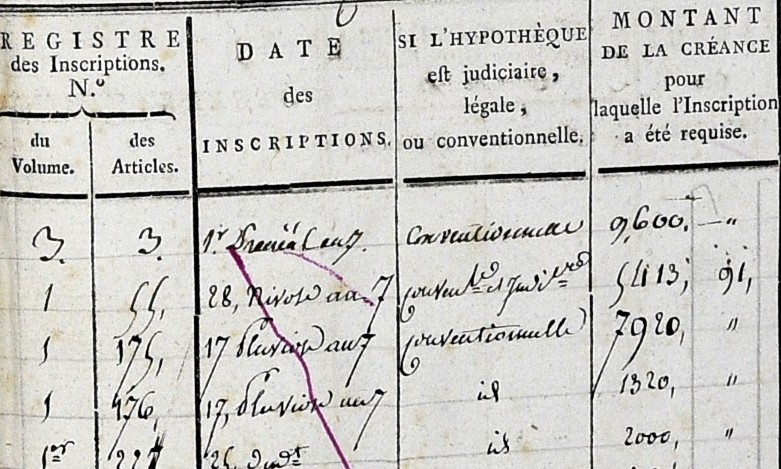 REGISTRE
des Inscriptions.
N.º
du
Volume.
des
Articles.
DATE
des
INSCRIPTIONS.
SI L'HYPOTHÈQUE
est judiciaire,
légale,
ou conventionnelle.
MONTANT
DE LA CRÉANCE
pour
laquelle l'Inscription
a été requise.
3. 3. 1.r Prairial an 7. Conventionnelle 9,600. — "
1 55, 28, Nivose an 7 conven.lle et Judi.re 5413, 91,
1 175, 17 Pluviose an 7 conventionnelle 7920, "
1 176, 17, Pluviose an 7 id 1320, "
1er 227 25, dudt id 2000, "